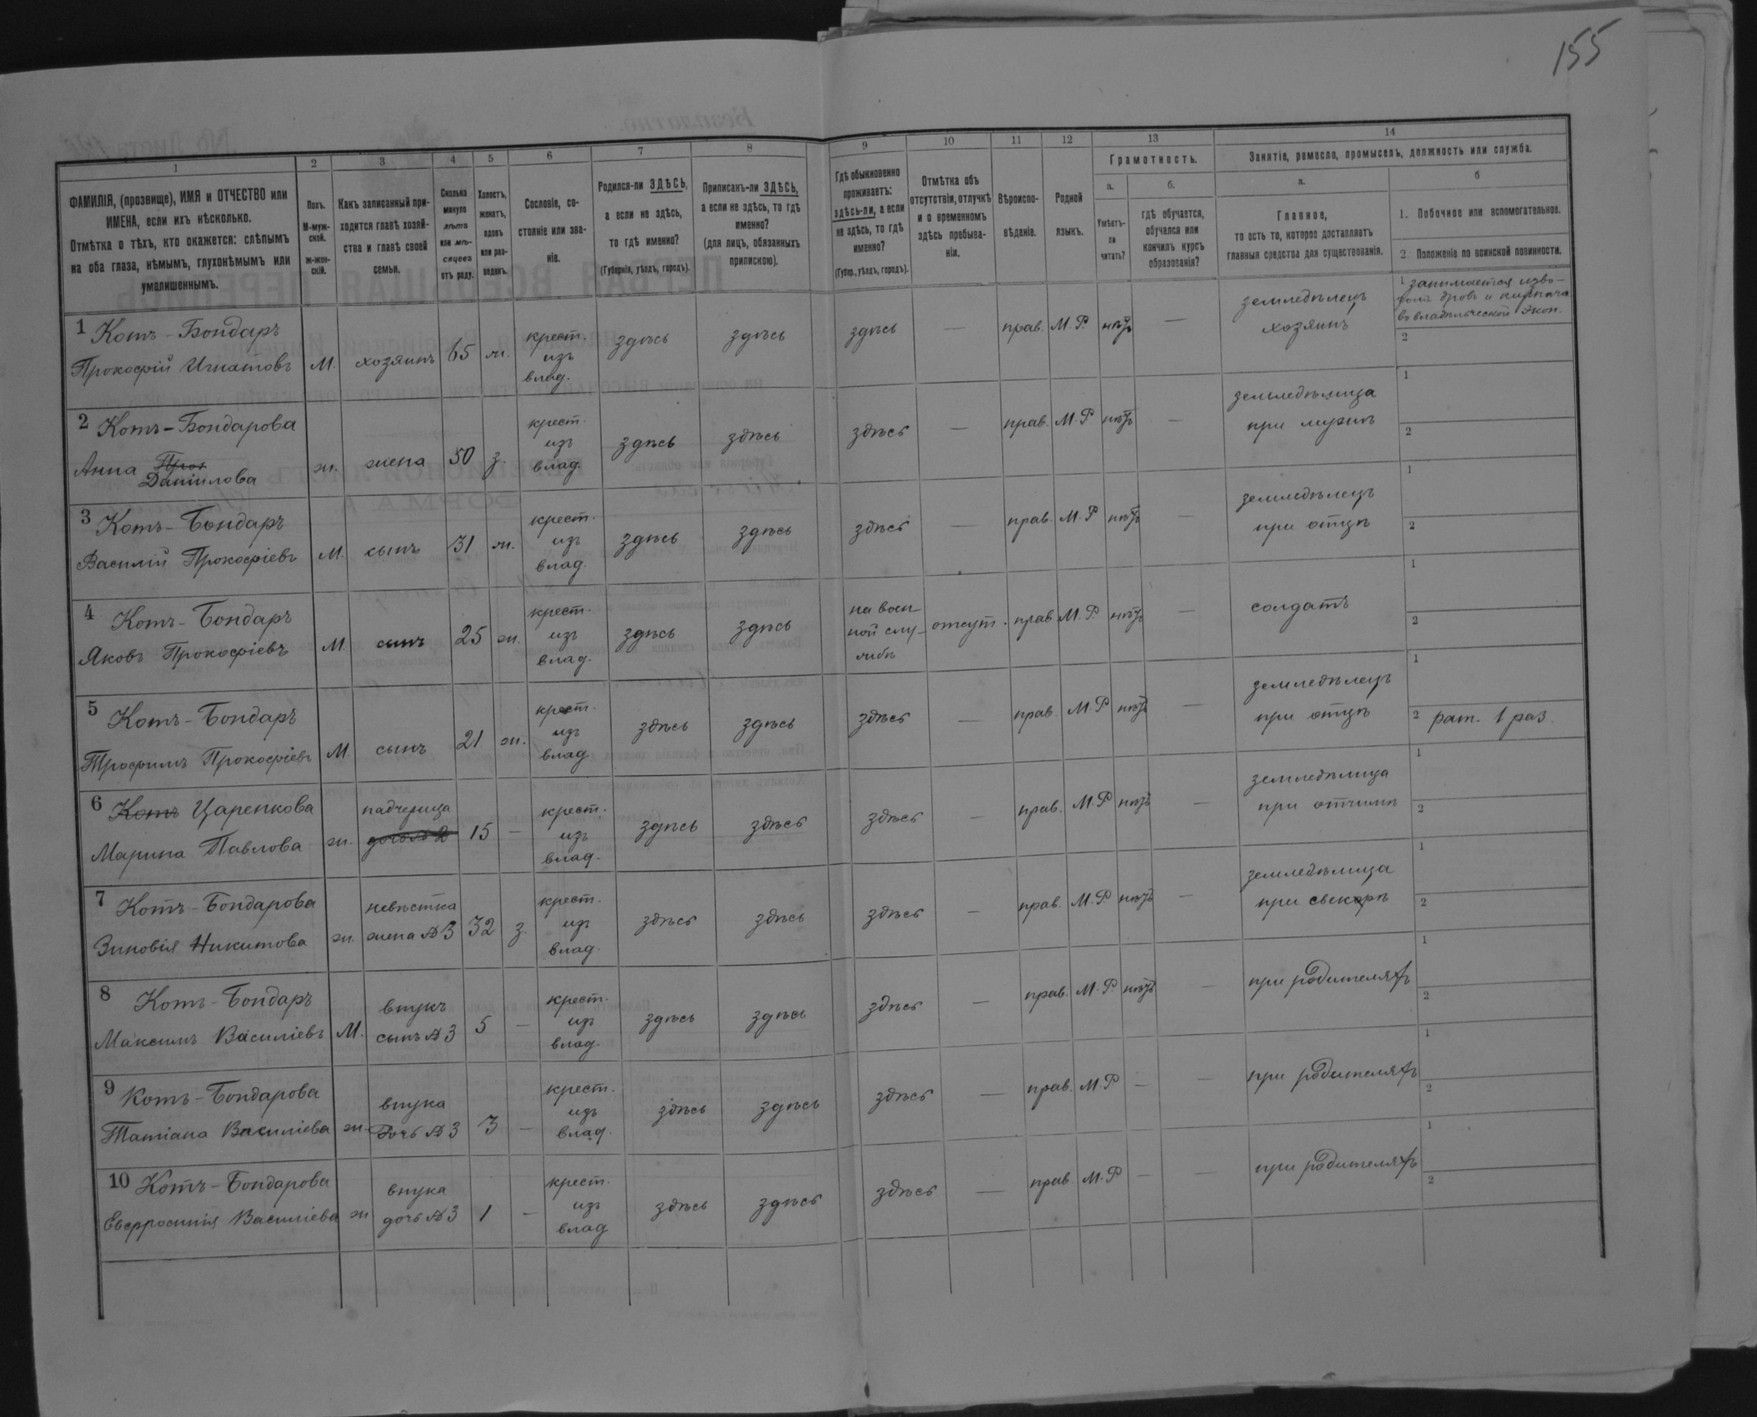 155
1 2 3 4 5 6 7 8 9 10 11 12 13 14
ФАМИЛІЯ, (прозвище), ИМЯ и ОТЧЕСТВО или
ИМЕНА, если ихъ нѣсколько.
Отмѣтка о тѣхъ, кто окажется: слѣпымъ
на оба глаза, нѣмымъ, глухонѣмымъ или
умалишеннымъ.
Полъ.
М-муж-
ской.
ж-жен-
скій.
Какъ записанный при-
ходится главѣ хозяй-
ства и главѣ своей
семьи.
Сколько
минуло
лѣтъ
или мѣ-
сяцевъ
отъ роду.
Холостъ,
женатъ,
вдовъ
или раз-
веденъ.
Сословіе, со-
стояніе или зва-
ніе.
Родился-ли ЗДѢСЬ,
а если не здѣсь,
то гдѣ именно?
(Губернія, уѣздъ, городъ).
Приписанъ-ли ЗДѢСЬ,
а если не здѣсь, то гдѣ
именно?
(для лицъ, обязанныхъ
припискою).
Гдѣ обыкновенно
проживаетъ:
здѣсь-ли, а если
не здѣсь, то гдѣ
именно?
(Губер., уѣздъ, городъ).
Отмѣтка объ
отсутствіи, отлучкѣ
и о временномъ
здѣсь пребыва-
ніи.
Вѣроиспо-
вѣданіе.
Родной
языкъ.
Грамотность.
а.
Умѣетъ-
ли
читать?
б.
гдѣ обучается,
обучался или
кончилъ курсъ
образованія?
Занятіе, ремесло, промыселъ, должность или служба.
а.
Главное,
то есть то, которое доставляетъ
главныя средства для существованія.
б
1. Побочное или вспомогательное.
2. Положеніе по воинской повинности.
1 Котъ-Бондаръ
Прокофій Игнатовъ М. хозяинъ 65 ж. крест. изъ влад. здѣсь здѣсь здѣсь — прав. М.Р. нѣтъ — земледѣлецъ хозяинъ
1 занимается изво-
зомъ дровъ и кирпича
въ владѣльческой экон.
2
2 Котъ-Бондарова
Анна Даніилова ж. жена 50 з. крест. изъ влад. здѣсь здѣсь здѣсь — прав. М.Р нѣтъ — земледѣлица при мужѣ 1 2
3 Котъ-Бондаръ
Василій Прокофіевъ М. сынъ 31 ж. крест. изъ влад. здѣсь здѣсь здѣсь — прав. М.Р нѣтъ — земледѣлецъ при отцѣ 1 2
4 Котъ-Бондаръ
Яковъ Прокофіевъ М сынъ 25 ж. крест. изъ влад. здѣсь здѣсь на воен-
ной слу-
жбѣ отсут. прав М.Р. нѣтъ — солдатъ 1 2
5 Котъ-Бондаръ
Трофимъ Прокофіевъ М сынъ 21 ж. крест. изъ влад здѣсь здѣсь здѣсь — прав. М.Р нѣтъ — земледѣлецъ при отцѣ 1
2 рат. 1 раз.
6 Котъ Царенкова
Марина Павлова ж. падчерица 15 — крест. изъ влад. здѣсь здѣсь здѣсь — прав. М.Р нѣтъ — земледѣлица при отчимѣ 1 2
7 Котъ-Бондарова
Зиновія Никитова ж. невѣстка жена № 3 32 з. крест. изъ влад. здѣсь здѣсь здѣсь — прав. М.Р нѣтъ — земледѣлица при свекрѣ 1 2
8 Котъ-Бондаръ
Максимъ Василіевъ М. внукъ сынъ № 3 5 — крест. изъ влад. здѣсь здѣсь здѣсь — прав. М.Р. нѣтъ — при родителяхъ 1 2
9 Котъ-Бондарова
Татіана Василіева ж. внука дочь № 3 3 — крест. изъ влад. здѣсь здѣсь здѣсь — прав. М.Р — — при родителяхъ 1 2
10 Котъ-Бондарова
Евфросинія Василіева ж внука дочь № 3 1 — крест. изъ влад здѣсь здѣсь здѣсь — прав М.Р — — при родителяхъ 1 2